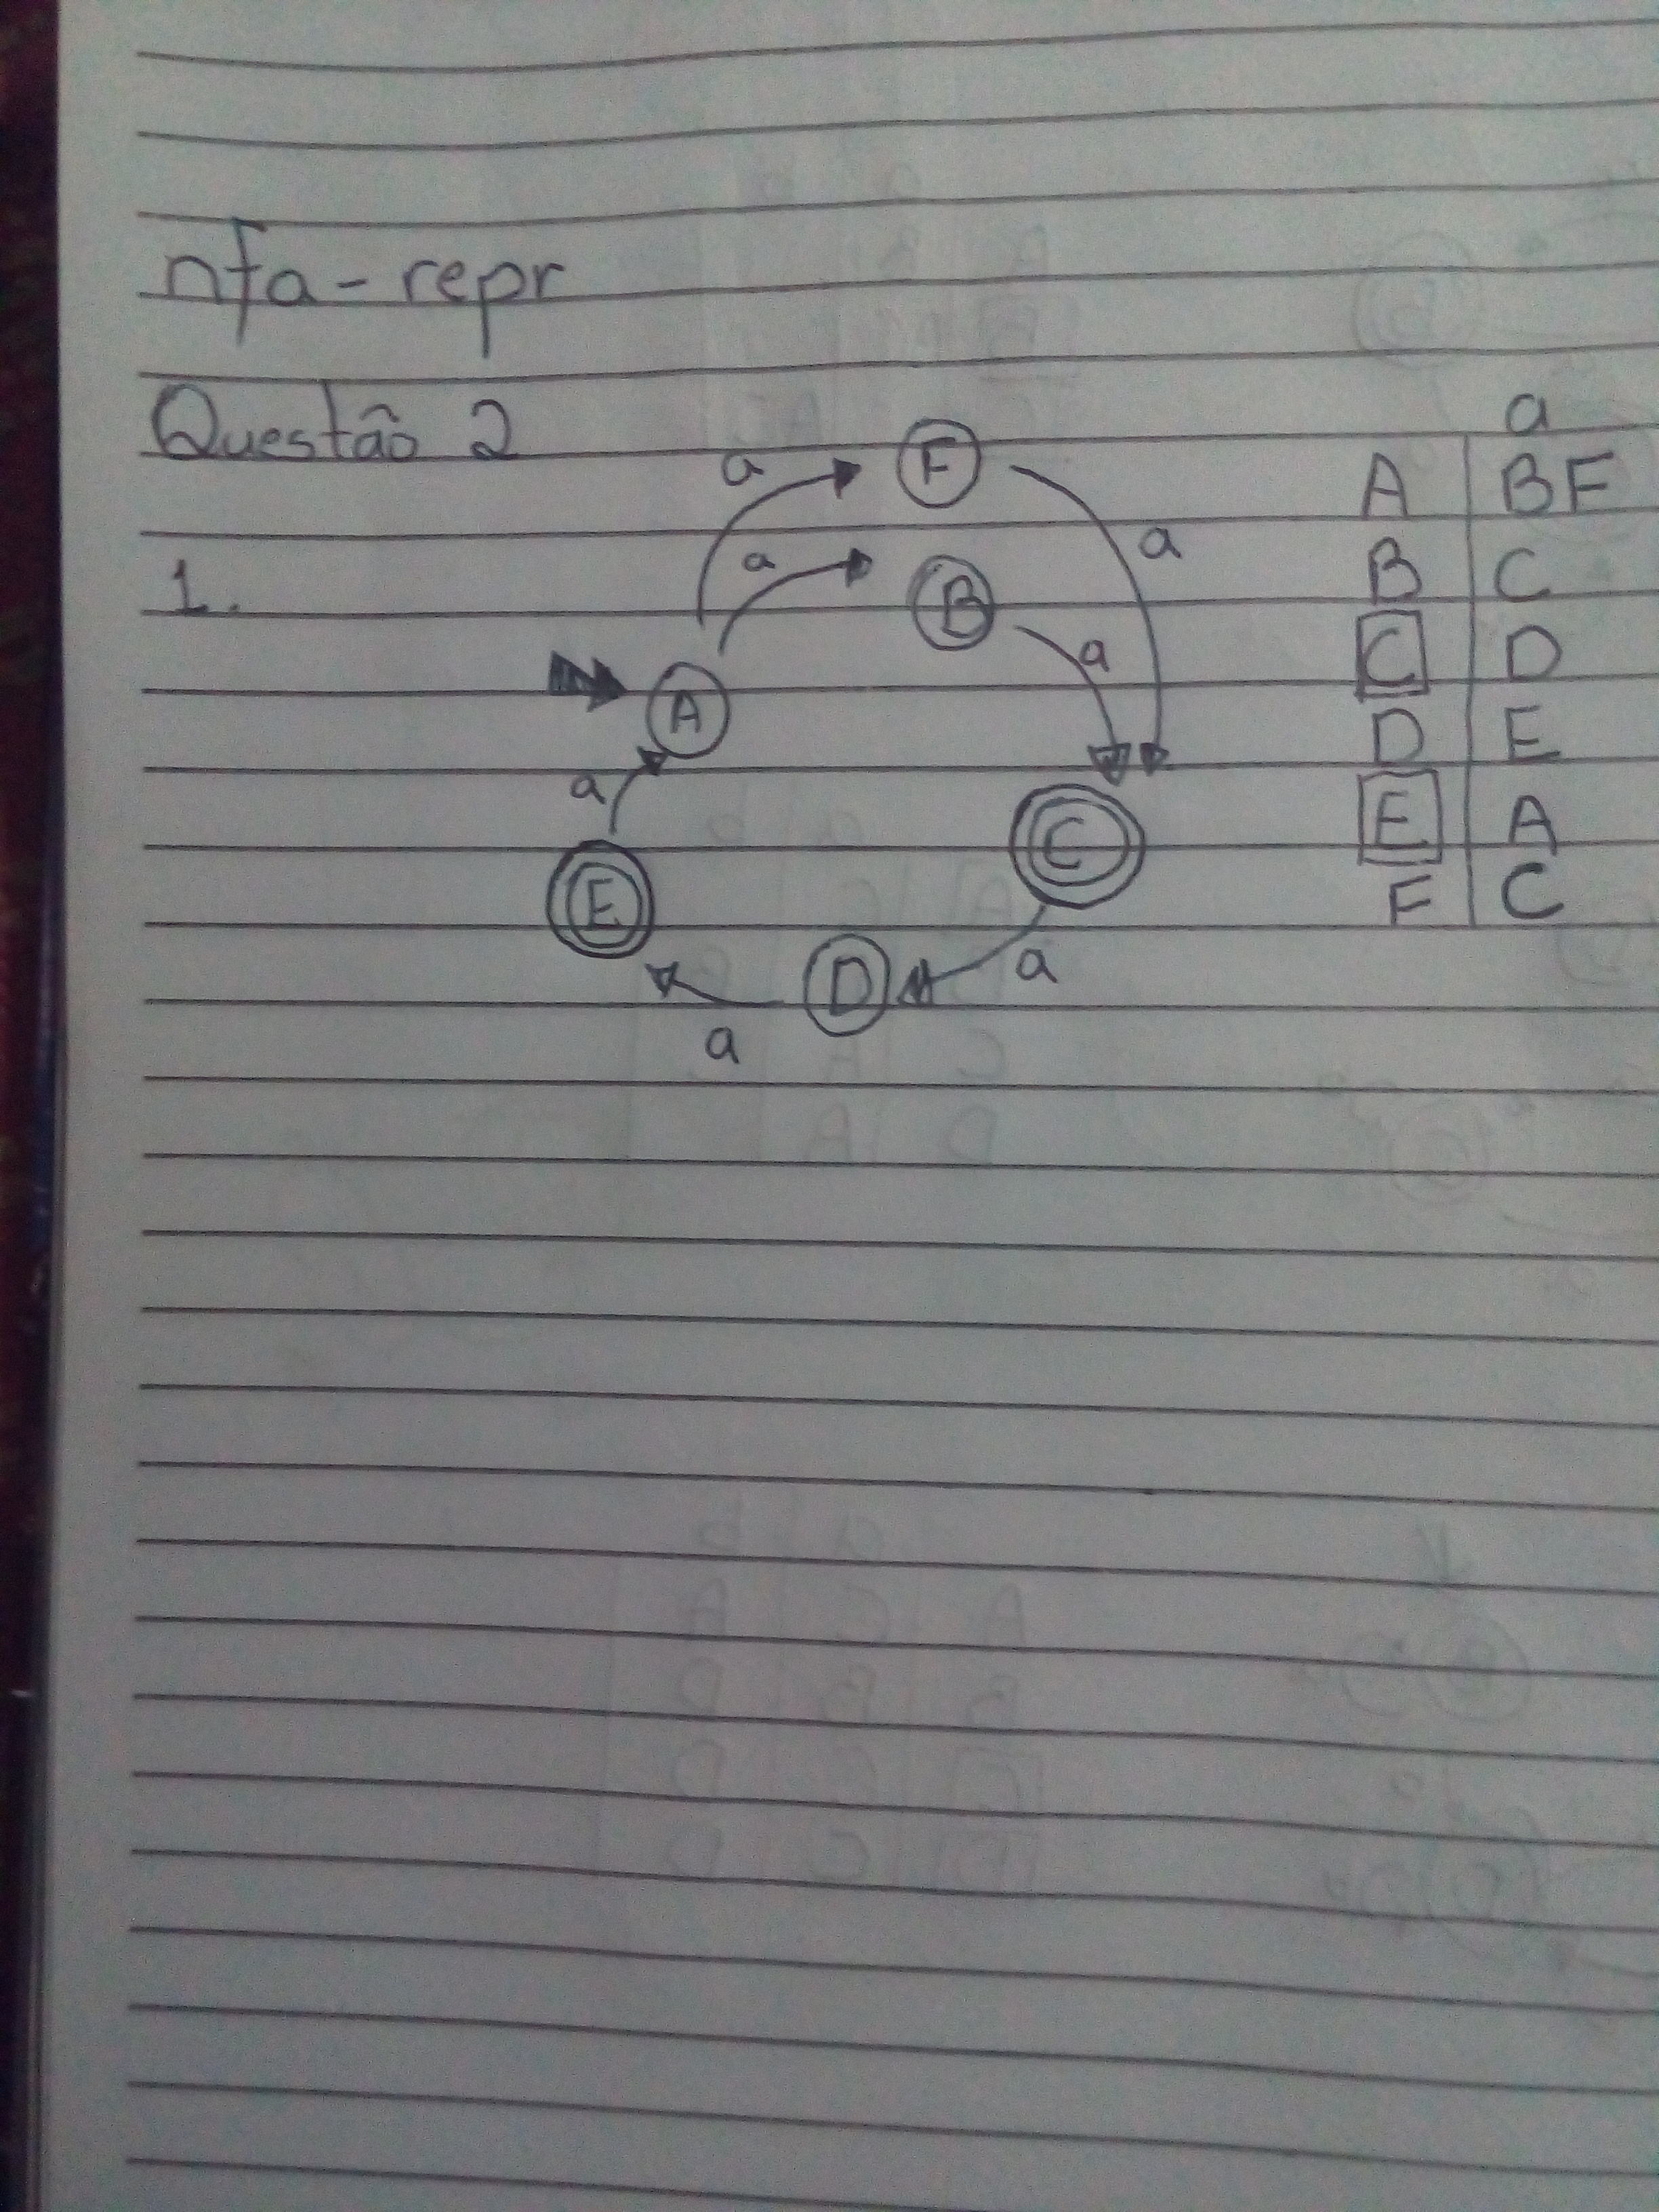 nfa-repr
Questão 2
1.
a
F
a
a
B
a
A
a
C
E
D
a
a
a
A BF
B C
C D
D E
E A
F C